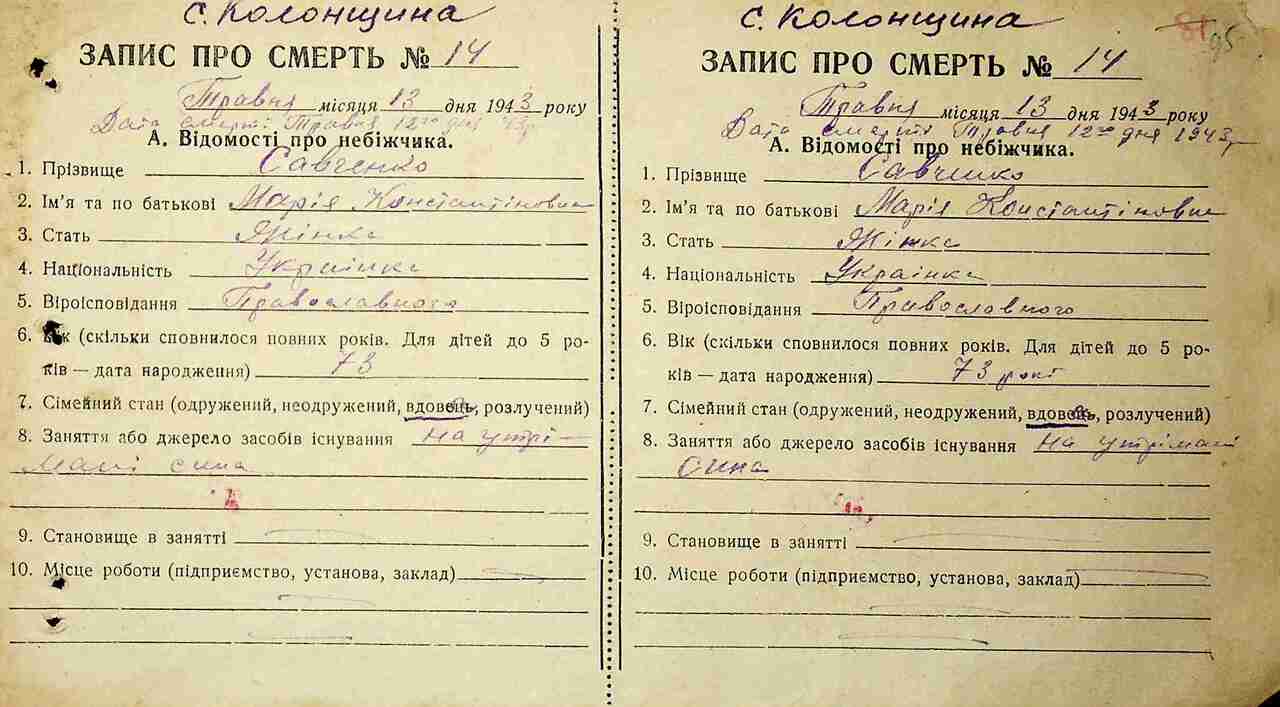 с. Колонщина
ЗАПИС ПРО СМЕРТЬ № 14
Травня місяця 13 дня 1943 року
Дата смерті Травня 12го дня 43р
А. Відомості про небіжчика.
1. Прізвище Савченко
2. Ім'я та по батькові Марія Константіновна
3. Стать Жінка
4. Національність Українка
5. Віроісповідання Православного
6. Вік (скільки сповнилося повних років. Для дітей до 5 ро-
ків — дата народження) 73
7. Сімейний стан (одружений, неодружений, вдовець, розлучений)
8. Заняття або джерело засобів існування на утрі-
мані сина
9. Становище в занятті
10. Місце роботи (підприємство, установа, заклад)
с. Колонщина
81 95
ЗАПИС ПРО СМЕРТЬ № 14
Травня місяця 13 дня 1943 року
Дата смерті Травня 12го дня 1943р
А. Відомості про небіжчика.
1. Прізвище Савченко
2. Ім'я та по батькові Марія Константіновна
3. Стать Жінка
4. Національність Українка
5. Віроісповідання Православного
6. Вік (скільки сповнилося повних років. Для дітей до 5 ро-
ків — дата народження) 73 рокі
7. Сімейний стан (одружений, неодружений, вдовець, розлучений)
8. Заняття або джерело засобів існування на утрімані
сина
9. Становище в занятті
10. Місце роботи (підприємство, установа, заклад)